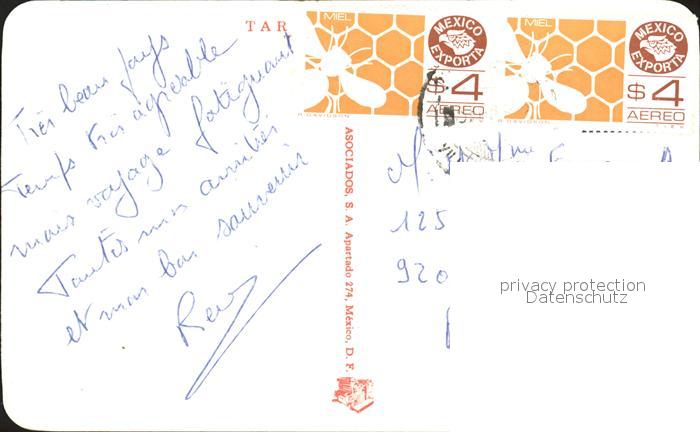 TAR
Très beau pays
Temps très agréable
mais voyage fatiguant
Toutes mes amitiés
et mon bon souvenir
MIEL
MEXICO
EXPORTA
$4
AEREO
R. DAVIDSON
MIEL
MEXICO
EXPORTA
$4
AEREO
R. DAVIDSON
ASOCIADOS, S A. Apartado 274, México, D. F.
125
920
privacy protection
Datenschutz